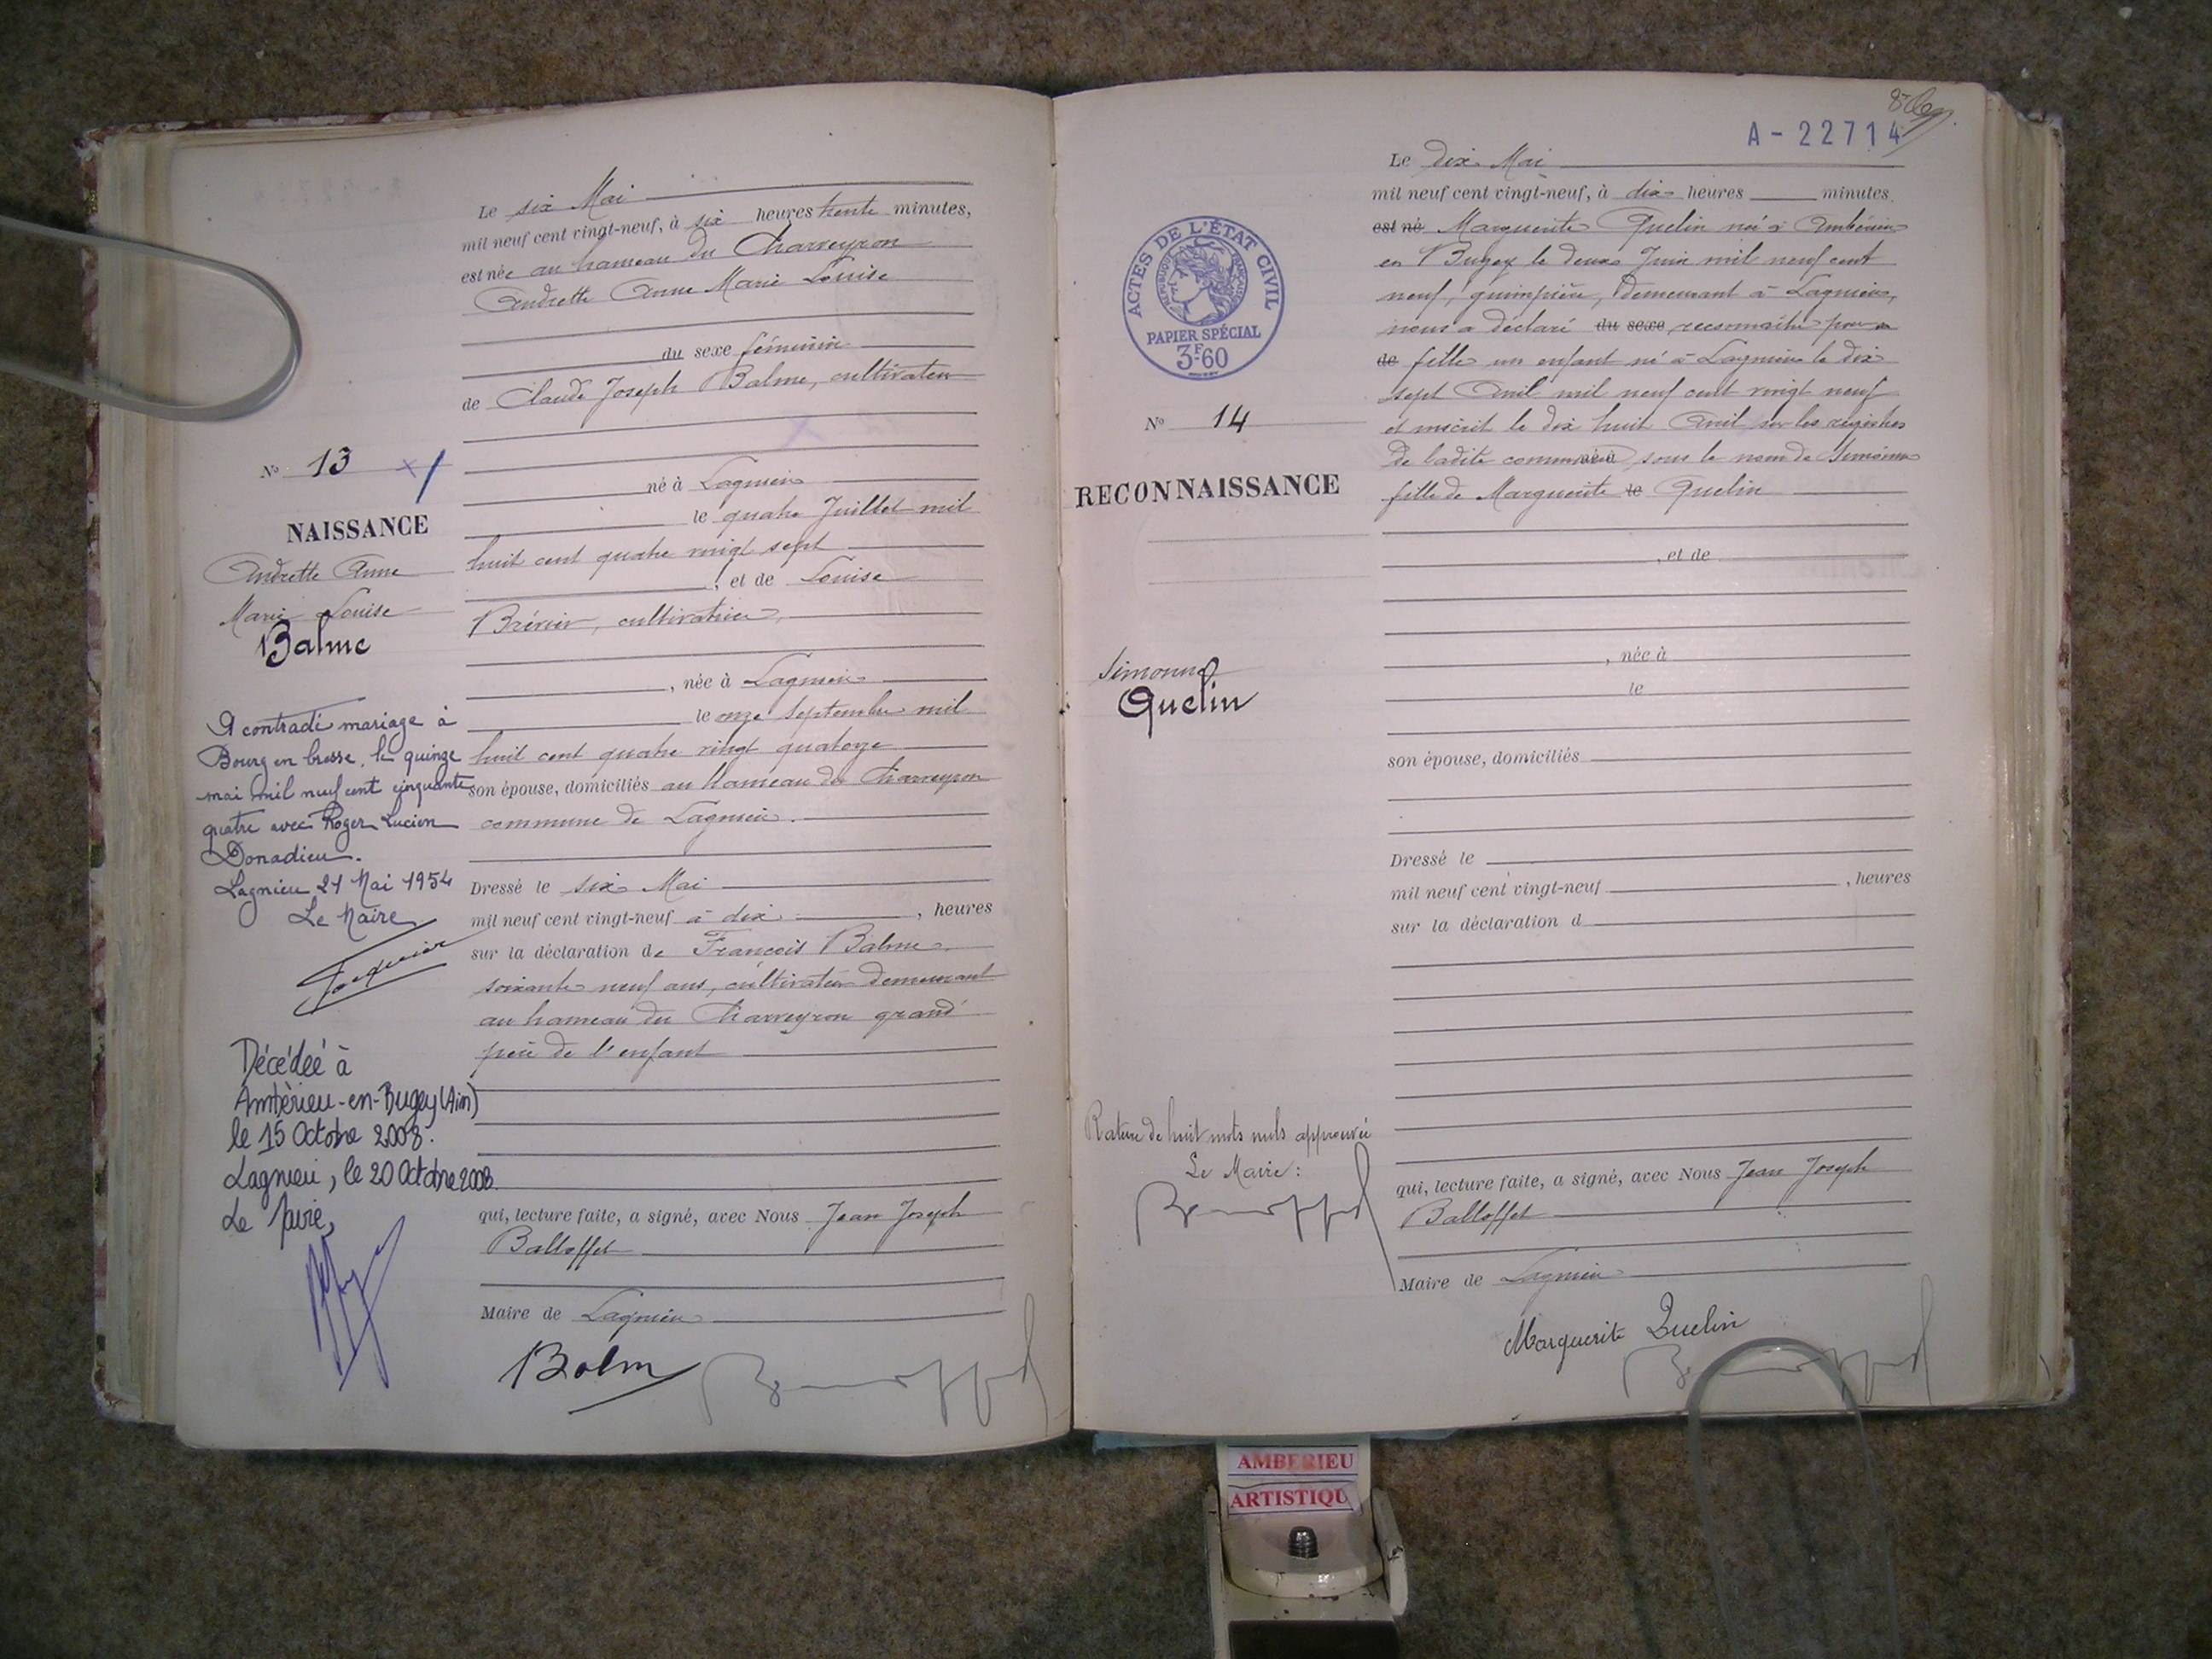 Le six Mai
mil neuf cent vingt-neuf, à six heures trente minutes,
est née au hameau du Charveyron
Andrette Anne Marie Louise
du sexe féminin
de Claude Joseph Balme, cultivateur
né à Lagnieu
le quatre Juillet mil
huit cent quatre vingt sept
, et de Louise
cultivatrice,
, née à Lagnieu
le onze Septembre mil
huit cent quatre vingt quatorze
son épouse, domiciliés au hameau du Charveyron
commune de Lagnieu.
Dressé le six Mai
mil neuf cent vingt-neuf à dix , heures
sur la déclaration de François Balme,
soixante neuf ans, cultivateur demeurant
au hameau du Charveyron grand
père de l'enfant
qui, lecture faite, a signé, avec Nous Jean Joseph
Balloffet
Maire de Lagnieu
Balm
No 13
NAISSANCE
Andrette Anne
Marie Louise
Balme
A contracté mariage à
Bourg en bresse, le quinze
mai mil neuf cent cinquante
quatre avec Roger Lucien
Donadieu.
Lagnieu 21 Mai 1954
Le Maire
Décédée à
Ambérieu-en-Bugey (Ain)
le 15 Octobre 2008.
Lagnieu, le 20 Octobre 2008.
Le Maire,
A-22714
Le dix Mai
mil neuf cent vingt-neuf, à dix heures minutes,
est né Marguerite Quelin née à Ambérieu
en Bugey le deux Juin mil neuf cent
neuf, guimpière, demeurant à Lagnieu,
nous a déclaré du sexe reconnaître pour sa
de fille un enfant né à Lagnieu le dix
sept Avril mil neuf cent vingt neuf
et inscrit le dix huit Avril sur les registres
de ladite commune né à sous le nom de Simonne
fille de Marguerite le Quelin
, et de
, née à
le
son épouse, domiciliés
Dressé le
mil neuf cent vingt-neuf , heures
sur la déclaration d
qui, lecture faite, a signé, avec Nous Jean Joseph
Balloffet
Maire de Lagnieu
Marguerite Quelin
ACTES DE L'ÉTAT CIVIL
RÉPUBLIQUE FRANÇAISE
PAPIER SPÉCIAL
3F60
No 14
RECONNAISSANCE
Simonne
Quelin
Rature de huit mots nuls approuvée
Le Maire:
AMBERIEU
ARTISTIQU